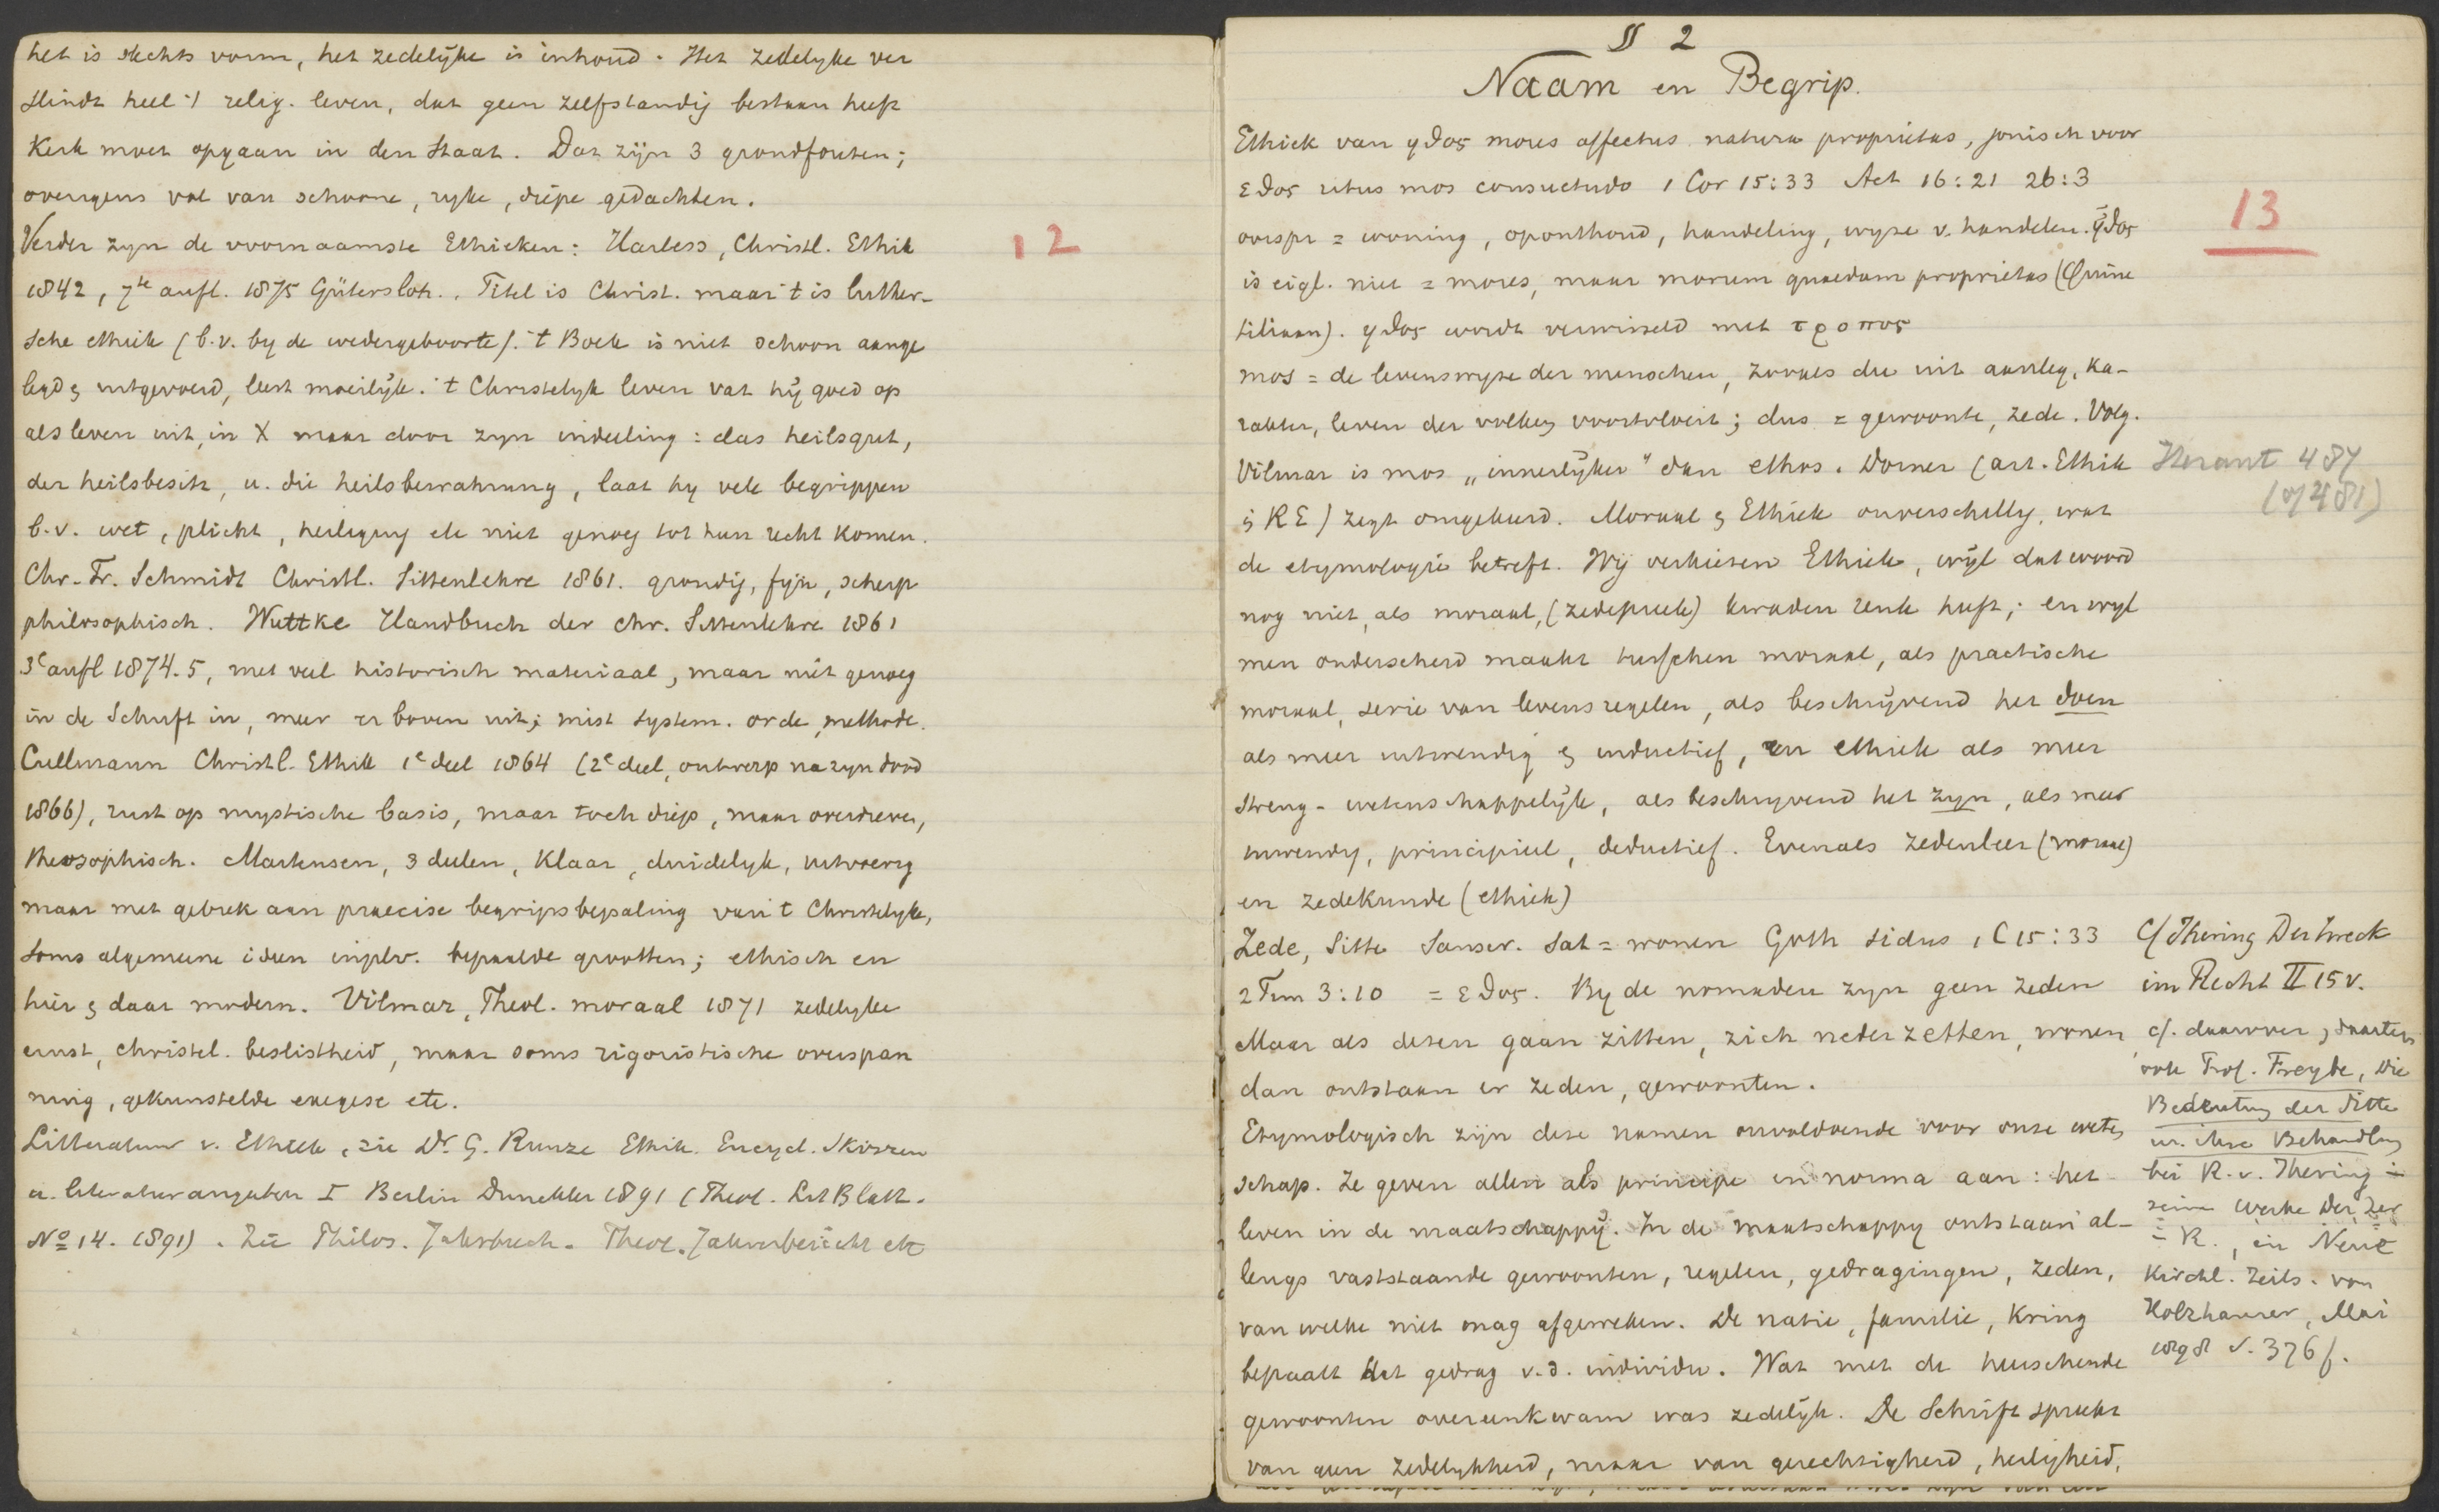 het is slechts vorm, het zedelijke is inhoud. Het zedelyke ver
slindt heel 't relig. leven, dat geen zelfstandig bestaan heeft
Kerk moet opgaan in den Staat. Dat zijn 3 grondfouten;
overigens vol van schoone, ryke, diepe gedachten.
Verder zyn de voornaamste Ethieken: Harless, Christl. Ethik
1842, 7te aufl. 1875 Gütersloh. Titel is Christ. maar 't is luther-
sche ethiek (b.v. by de wedergeboorte). 't Boek is niet schoon aange
legd en uitgevoerd, leest moeilijk. 't Christelyk leven vat hij goed op
als leven uit, in X maar door zyn indeeling: das heilsgut,
der heilsbesitz, u. die heilsbewahrung, laat hy vele begrippen
b.v. wet, plicht, heiliging etc niet genoeg tot hun recht komen.
Chr. Fr. Schmidt Christl. Sittenlehre 1861. grondig, fijn, scherp
philosophisch. Wuttke Handbuch der chr. Sittenlehre 1861
3e aufl 1874.5, met veel historisch materiaal, maar niet genoeg
in de Schrift in, meer er boven uit; mist system. orde, methode.
Cullmann Christl. Ethik 1e deel 1864 (2e deel, ontwerp na zyn dood
1866), rust op mystische basis, maar toch diep, maar overdreven,
theosophisch. Martensen, 3 deelen, klaar, duidelyk, uitvoerig
maar met gebrek aan praecise begripsbepaling van 't Christelyke,
soms algemeene ideen in plv. bepaalde grootten; ethisch en
hier en daar modern. Vilmar, Theol. moraal 1871 zedelyke
ernst, christel. beslistheid, maar soms rigoristische overspan
ning, gekunstelde exegese etc.
Litteratuur v. Ethiek, zie Dr. G. Runze Ethik. Encycl. Skizzen
u. literaturangaben I Berlin Duncker 1891 (Theol. Lit Blatt.
No 14. 1891). Zie Philos. Jahrbuch. Theol. Jahresbericht etc
12
§ 2
Naam en Begrip.
Ethiek van ηθος mores affectus natura proprietas, jonisch voor
εθος ritus mos consuetudo 1 Cor 15:33 Act 16:21 26:3
oorspr = woning, oponthoud, handeling, wyze v. handelen. ηθος
is eigl. niet = mores, maar morum quaedam proprietas (Quinc
tiliaan). ηθος wordt verwisseld met τροπος
mos = de levenswyze der menschen, zooals die uit aanleg, ka-
rakter, leven der volken voortvloeit; dus = gewoonte, zede. Volg.
Vilmar is mos „innerlijker" dan ethos. Dorner (art. Ethik
in RE) zegt omgekeerd. Moraal en Ethiek onverschillig, wat
de etymologie betreft. Wij verkiezen Ethiek, wijl dat woord
nog niet, als moraal, (zedepreek) kwaden reuk heeft; en wyl
men onderscheid maakt tusschen moraal, als practische
moraal, serie van levensregelen, als beschrijvend het doen
als meer uitwendig en inductief, en ethiek als meer
streng-wetenschappelijk, als beschryvend het zyn, als meer
inwendig, principieel, deductief. Evenals zedenleer (moraal)
en zedekunde (ethiek)
Zede, Sitte Sanscr. Sat = wonen Goth sidus 1 C 15:33
2 Tim 3:10 = εθος. By de nomaden zyn geen zeden
Maar als dezen gaan zitten, zich neder zetten, wonen
dan ontstaan er zeden, gewoonten.
Etymologisch zijn deze namen onvoldoende voor onze weten
schap. Ze geven allen als principe en norma aan: het
leven in de maatschappij. In de maatschappy ontstaan al-
lengs vaststaande gewoonten, regelen, gedragingen, zeden,
van welke niet mag afgeweken. De natie, familie, kring
bepaalt het gedrag v.d. individu. Wat met de heerschende
gewoonten overeenkwam was zedelijk. De Schrift spreekt
van geen zedelykheid, maar van gerechtigheid, heiligheid,
13
Heraut 487
(of 481)
Cf Ihering Der Zweck
im Recht II 15 v.
cf. daarover, daartegen
ook Prof. Freybe, Die
Bedeutung der Sitte
u. ihre Behandlung
bei R. v. Ihering in
seinem Werke Der Zw
i R., in Neue
Kirchl. Zeits. von
Holzhauser, Mai
1898 S. 376 f.